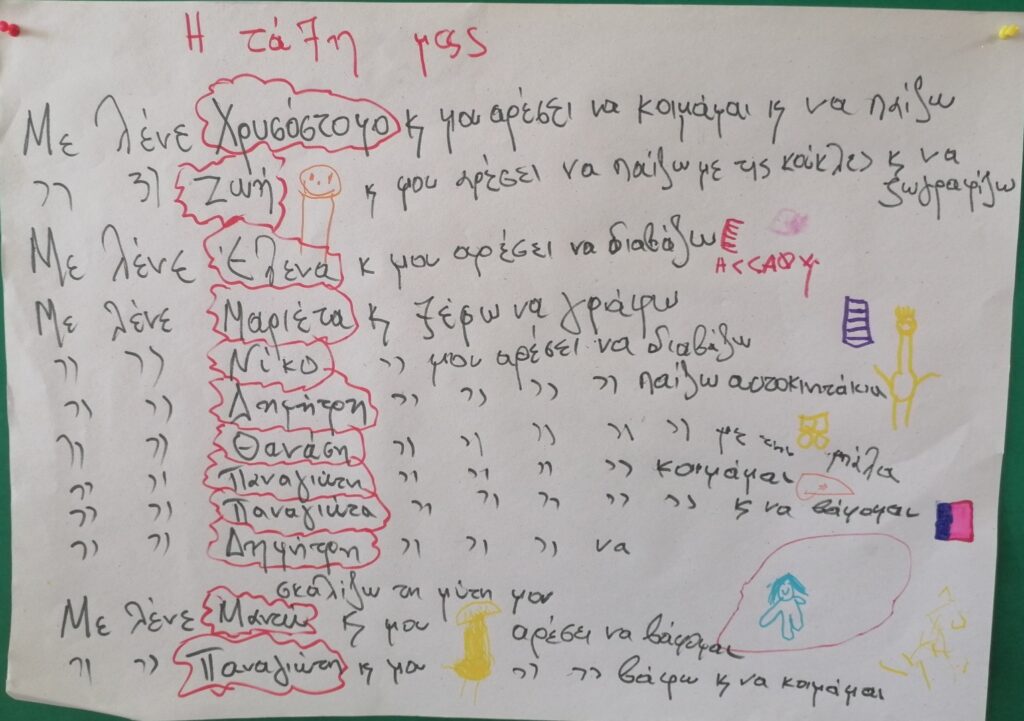 Η τάξη μας
Με λένε Χρυσόστομο κ μου αρέσει να κοιμάμαι κ να παίζω
〃 〃 Ζωή κ μου αρέσει να παίζω με τις κούκλες κ να ζωγραφίζω
Με λένε Έλενα κ μου αρέσει να διαβάζω
Με λένε Μαριέτα κ ξέρω να γράφω
〃 〃 Νίκο 〃 μου αρέσει να διαβάζω
〃 〃 Δημήτρη 〃 〃 〃 〃 παίζω αυτοκινητάκια
〃 〃 Θανάση 〃 〃 〃 〃 〃 με την μπάλα
〃 〃 Παναγιώτη 〃 〃 〃 〃 κοιμάμαι
〃 〃 Παναγιώτα 〃 〃 〃 〃 〃 κ να βάφομαι
〃 〃 Δημήτρη 〃 〃 〃 να
σκαλίζω τη μύτη μου
Με λένε κ μου αρέσει να βάφομαι
〃 〃 Παναγιώτη κ μου 〃 〃 βάφω κ να κοιμάμαι